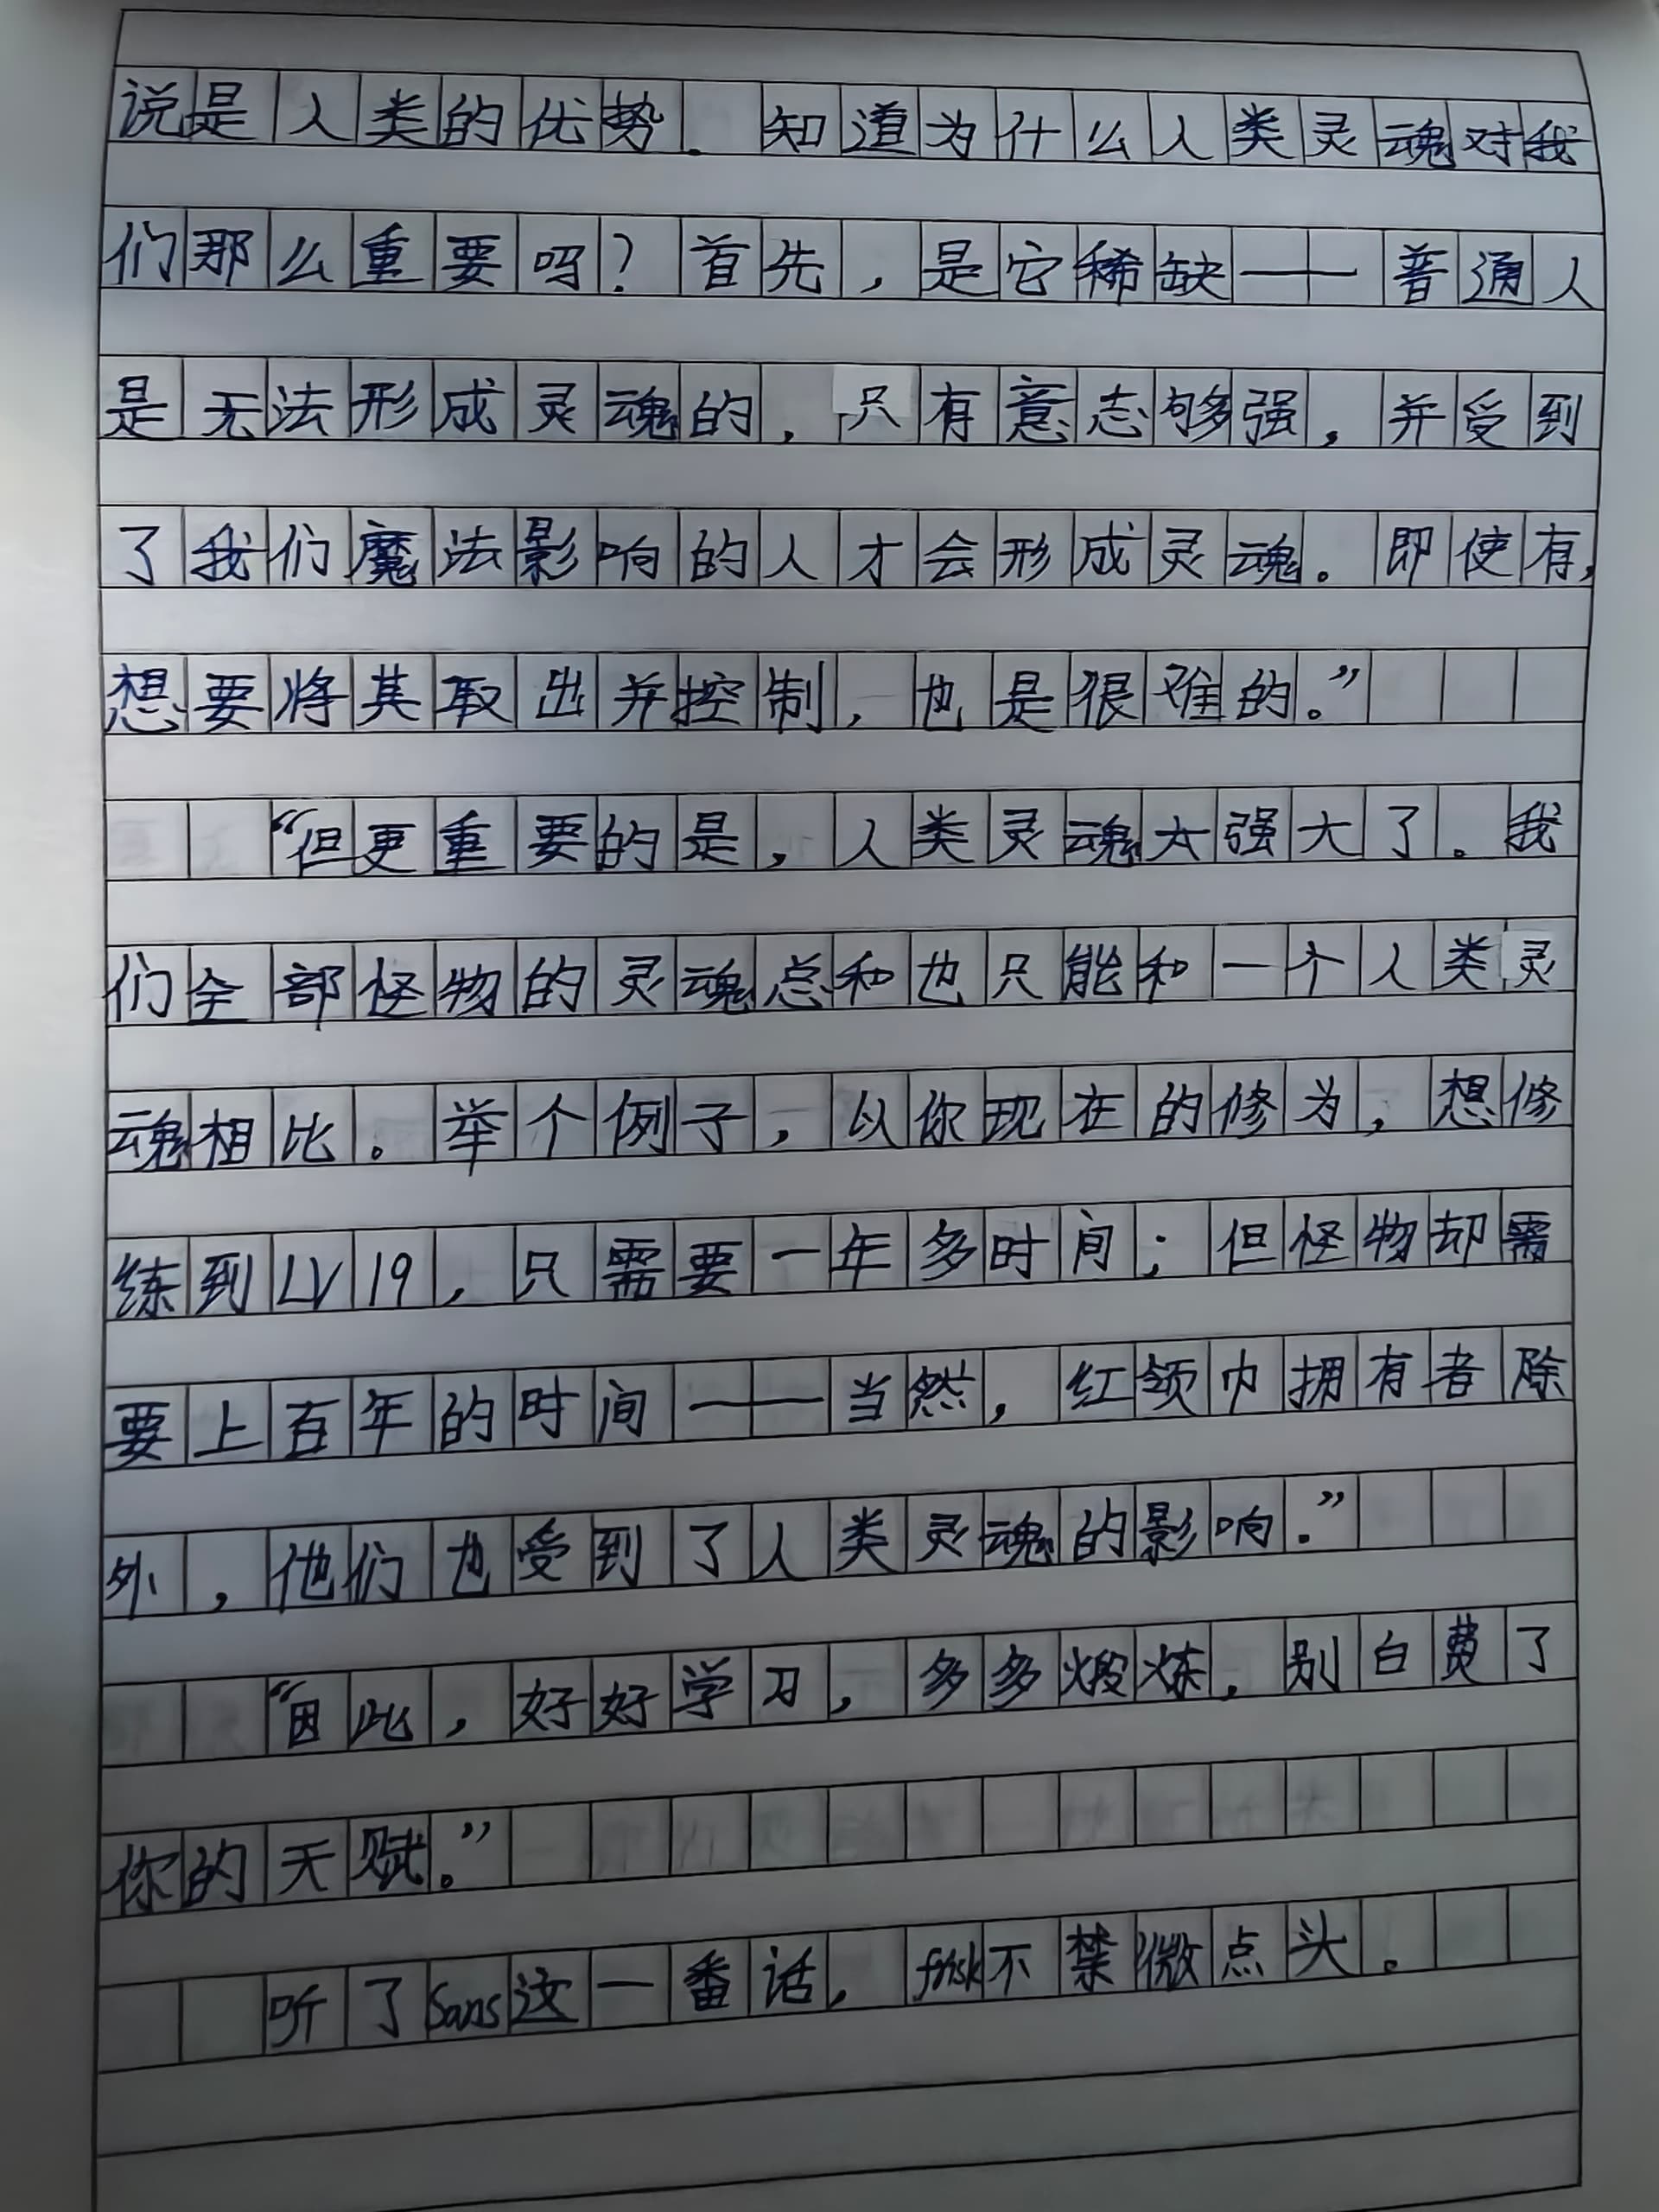 说是人类的优势。知道为什么人类灵魂对我
们那么重要吗？首先，是它稀缺——普通人
是无法形成灵魂的，只有意志够强，并受到
了我们魔法影响的人才会形成灵魂。即使有，
想要将其取出并控制，也是很难的。”
“但更重要的是，人类灵魂太强大了。我
们全部怪物的灵魂总和也只能和一个人类灵
魂相比。举个例子，以你现在的修为，想修
练到LV19，只需要一年多时间；但怪物却需
要上百年的时间——当然，红领巾拥有者除
外，他们也受到了人类灵魂的影响。”
“因此，好好学习，多多煅炼，别白费了
你的天赋。”
听了Sans这一番话，frisk不禁微点头。